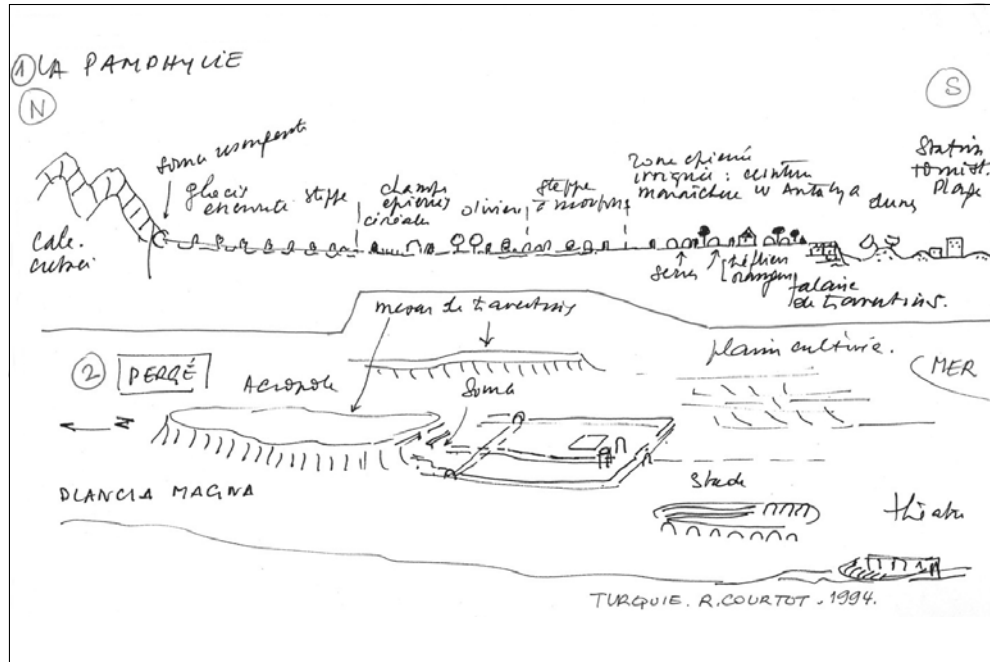 ① LA PAMPHYLIE
N
S
calc.
source
glacis
steppe
champs
épierrés
céréales
oliviers
steppe
zone épierrée
irriguée : ceinture
maraîchère d'Antalya
dunes
Station
tourist.
Plage
serres
orangers
falaise
de travertins.
mesas de travertins
② PERGÉ
Acropole
Source
plaine cultivée.
MER
N
PLANCIA MAGNA
Stade
théâtre
TURQUIE. R. COURTOT. 1994.